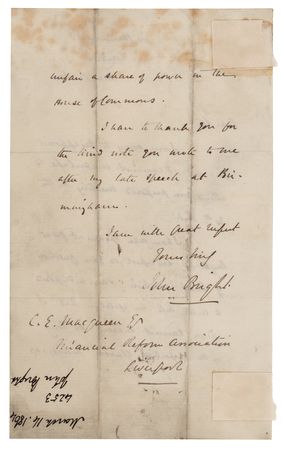 unfair a share of power in the
House of Commons.
I have to thank you for
the kind note you wrote to me
after my late speech at Bir-
mingham.
I am with great respect
Yours truly
John Bright.
C. E. Macqueen Esq
Financial Reform Association
Liverpool
March 14. 1864
4253
John Bright